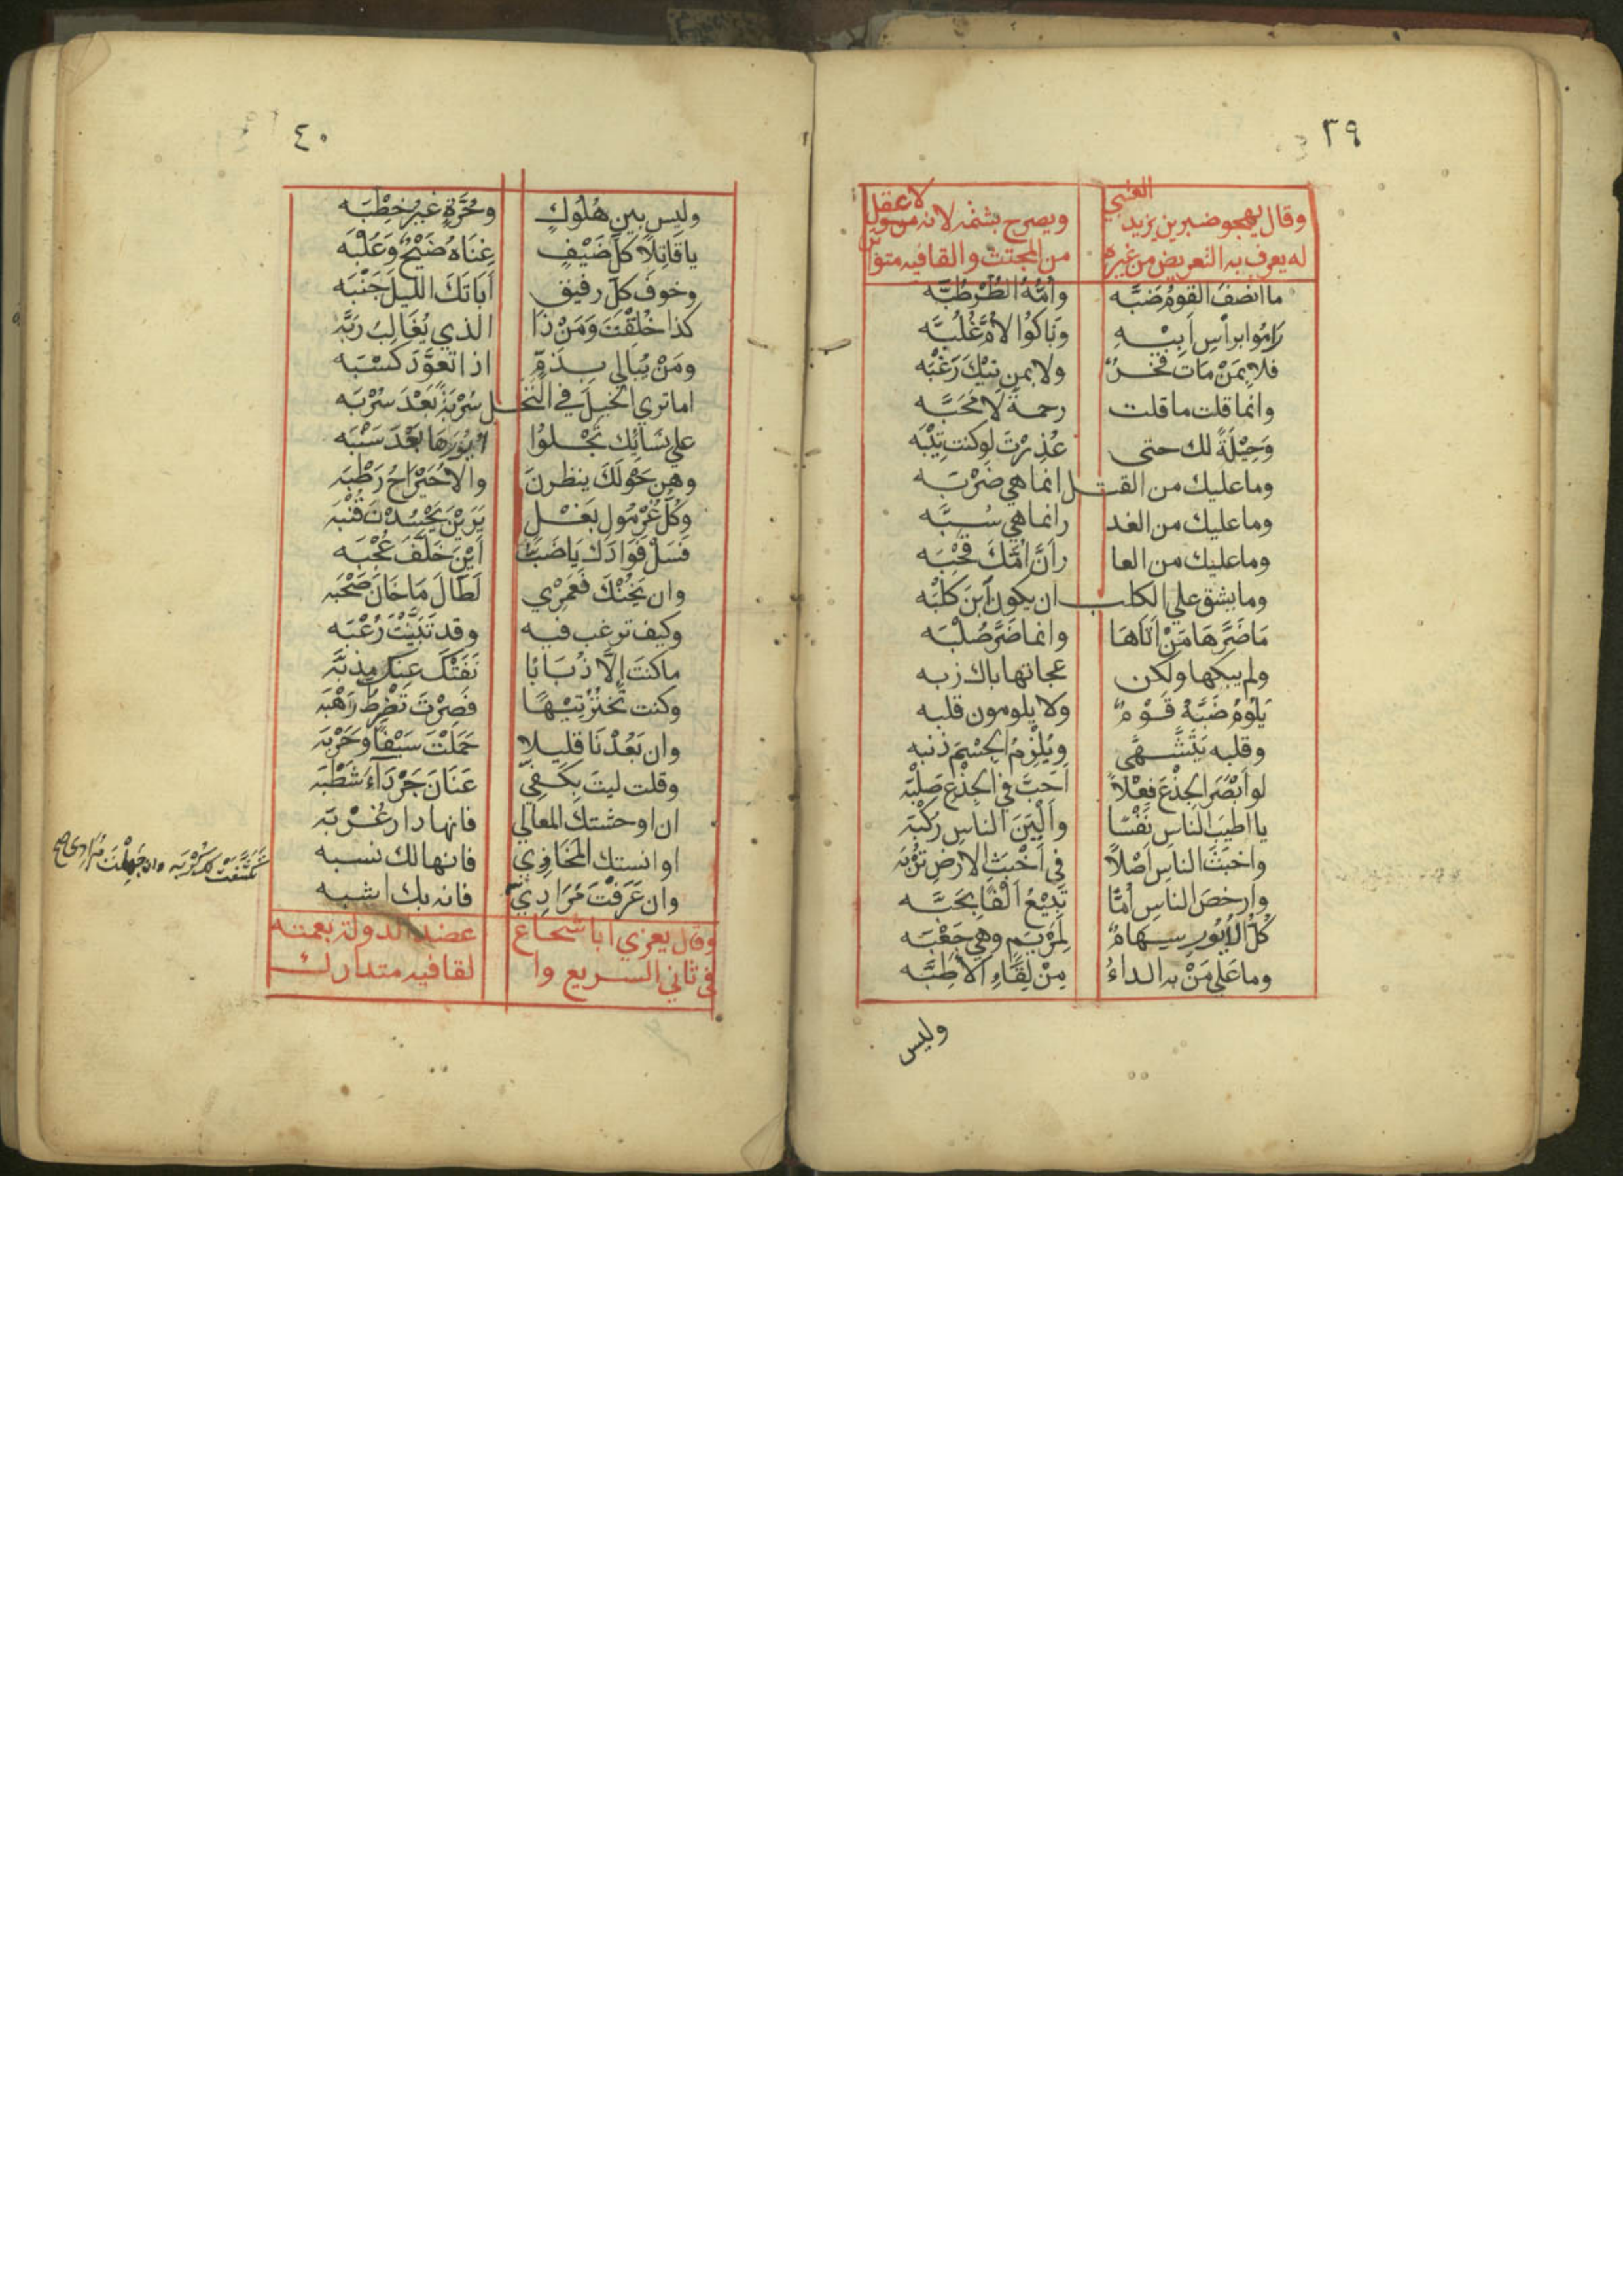 ٣٩
العتبي
وقال يهجو ضبة بن يزيد ويصرح بشتمه لانه لا عقل
له يعرف به التعريض من غيره من المجتث والقافيه متواتر
ما انصف القومُ ضَبَّه وامُّهُ الطُرْطُبَّه
رَامُوا براْسِ اَبِيْهِ وَنَاكُوُا لاُمَّ غُلُبَّه
فلا بِمَنْ مَاتَ فَخْرٌ ولا بمن نِيْكَ رَغْبَه
وانما قلت ما قلت رحمةً لاَ مَحَبَّه
وَحِيْلَةً لك حتى عُذِرْتَ لوكنت تِيْبَه
وما عليك من القتل انما هي ضَرْبَه
وما عليك من الغد رانما هي سُبَّه
وما عليك من العا رانَّ امَّكَ قَحْبَه
وما يشق علي الكلب ان يكون اَبنَ كلبَه
مَا ضَرَّهَا مَنْ اَتَاهَا وانما ضَرَّ صُلْبَه
ولم يبكها ولكن عجانها باك زبه
يَلُوْمُ ضَبَّةَ قَوْمٌ ولا يلومون قلبه
وقلبه يَتَشَهَّى ويُلْزِمُ الجِسْمَ ذنبه
لو اَبْصَرَ الجِذْعَ فِعْلاً اَحَبَّ في الجذْعِ صَلْبَه
يا اطيَبَ الناسِ نَفْسًا واَلْيَنَ الناسِ رُكْبَه
واخبَثَ الناسِ اَصْلاً في اَخْبَثِ الارضِ تُرْبَه
وارخصَ الناسِ اُمًّا تَبِيْعُ اَلْفًا بِحَبَّه
كُلُّ الاُيُورِ سِهَامٌ لِمَرْيَمٍ وهي جَعْبَه
وما عَلَى مَنْ به الداءُ مِنْ لِقَاءِ الاَطِبَّه
وليس
٤٠
وليس بين هَلُوكٍ وحُرَّةٍ غيرُ خِطْبَه
يا قَاتِلاً كلَّ ضَيْفٍ غِنَاهُ ضَيْحٌ وَعُلْبَه
وخوفَ كلِّ رفيقٍ اَبَاتَكَ الليلَ جَنْبَه
كذا خُلِقْتَ وَمَنْ ذَا الذي يُغَالِبُ رَبَّه
ومَنْ يُبالِي بِذَمٍّ اذا تعوَّدَ كَسْبَه
اما تري الخيلَ في النخل سُرْبَةً بَعْدَ سُرْبَه
علي نسَائِك تَجْلُوا ايُورَهَا بَعْدَ سَنْبَه
وهن حَوْلَكَ ينظرنَ والاُحَيْرَاحُ رَطْبَه
وكُلُّ غُرْمُولِ بَغْلٍ يَرَيْنَ يَحْسُدْنَ قُنْبَه
فَسَلْ فؤادَكَ يَا ضَبَّ اَيْنَ خَلَّفَ عُجْبَه
وان يَخُنْكَ فَعَمْرِي لَطَالَ مَا خَانَ صَحْبَه
وكيف ترغب فيه وقد تَبَيَّنْتَ رُعْبَه
ما كنتَ إلَّا ذُبَابًا نَفَتْكَ عنك مِذَبَّه
وكنت تَنْخِرُ تِيْهًا فَصِرْتَ تَضْرِطُ رَهْبَه
وان بَعُدْنَا قليلا حَمَلْتَ سَيْفًا وحَرْبَه
وقلت ليتَ بِكَفِّي عَنَانَ جَرْدَآءَ شَطْبَه
ان اوحشتك المعالي فانها دار غُرْبَه
او انستك المخازي فانها لك نسبه
وان عَرَفْتَ مُرَادِيْ تَكَشَّفَتْ عنك كُرْبَه وان جَهِلْتَ مُرَادِي صح
فانه بك اشبه
وقال يعزي ابا شجاع عضد الدولة بعمته
في ثاني السريع وا لقافيه متدارك